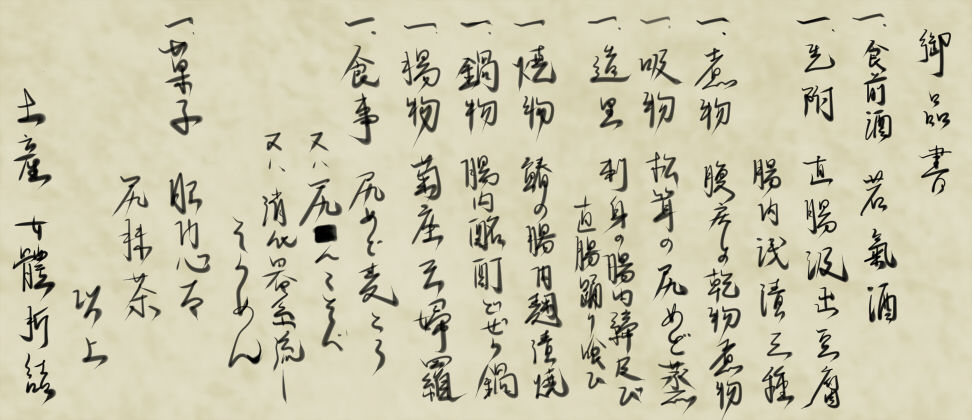 御品書
一、食前酒 若氣酒
一、先附 直腸汲出豆腐
腸内浅漬三種
一、煮物 腹序の乾物煮物
一、吸物 松茸の尻めど蒸
一、造里 刺身の腸内締尻び
直腸踊り喰ひ
一、燒物 鰆の腸内麹漬燒
一、鍋物 腸内酩酊どぜう鍋
一、揚物 菊座天婦羅
一、食事 尻めど麦とろ
又ハ 尻んこそば
又ハ 消化器系流
そうめん
一、菓子 肛門心太
尻抹茶
以上
土産 女體折詰